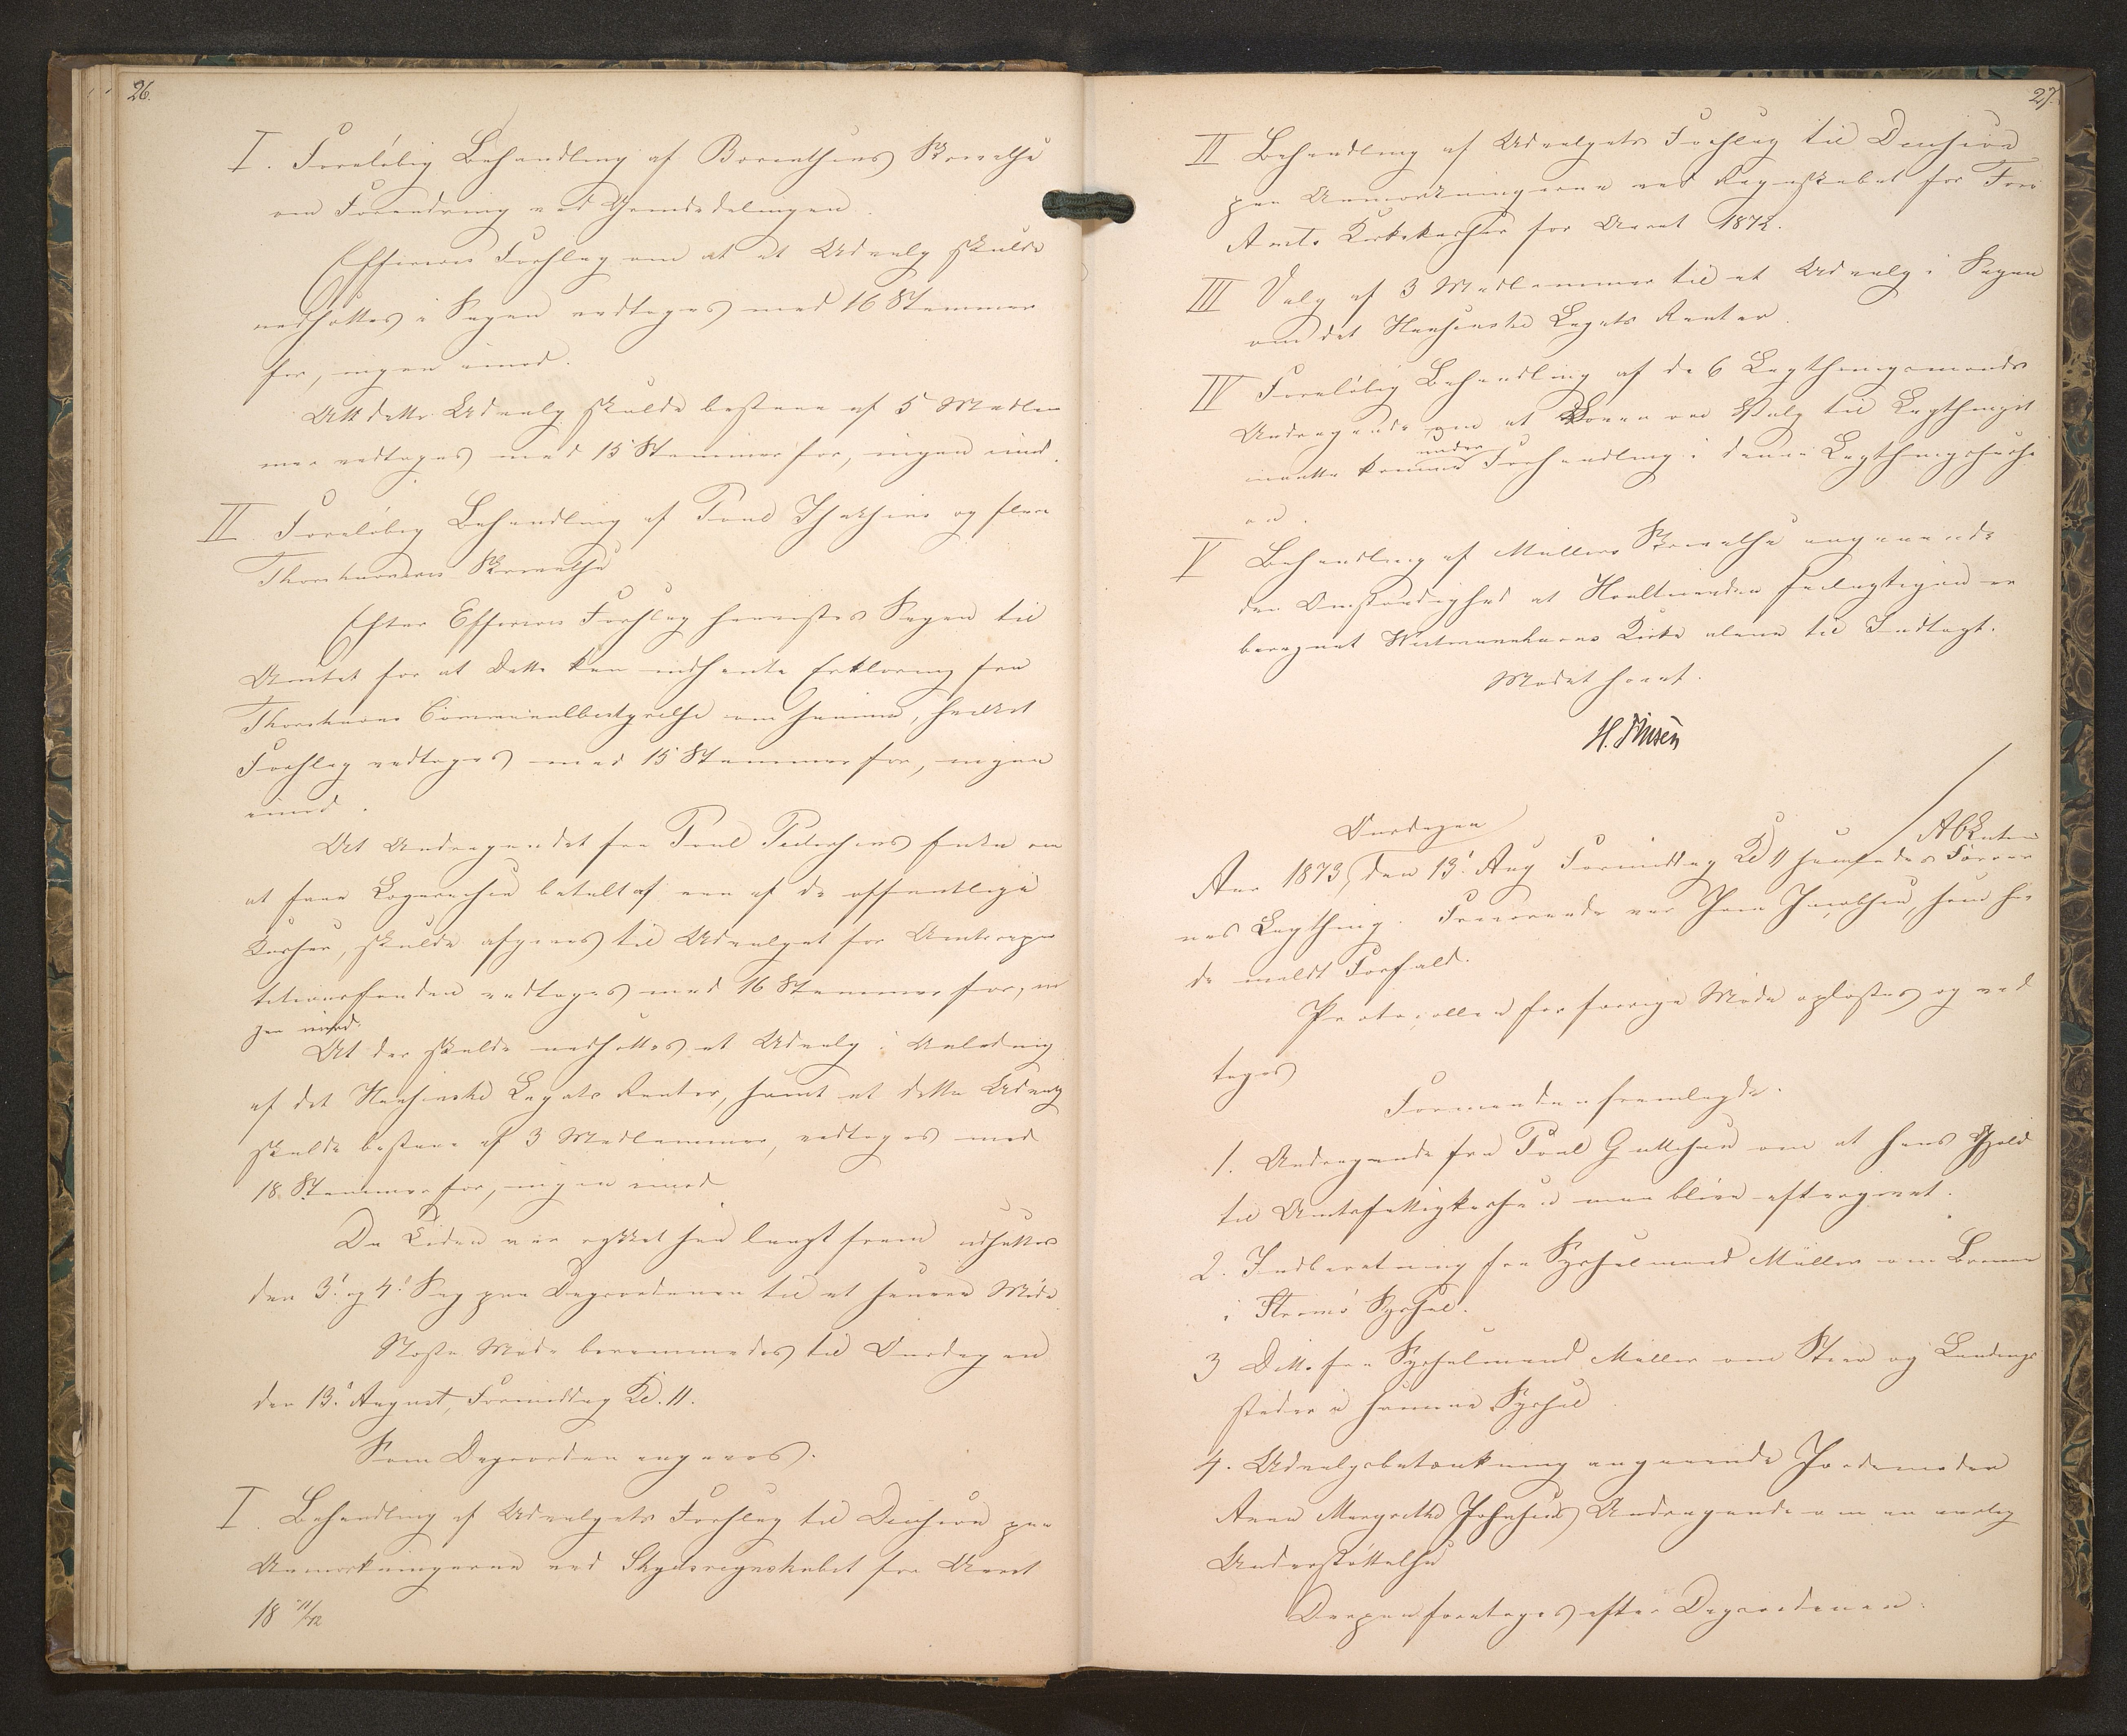 26.
I. Foreløbig Behandling af Borentsens Skrivelse
om Forandring ved Grindedelingen.
Effersøes Forslag om at et Udvalg skulde
nedsættes i Sagen vedtoges med 16 Stemmer
for, ingen imod.
Att dette Udvalg skulde bestaae af 5 Medlem
mer vedtoges med 15 Stemmer for, ingen imd.
II Foreløbig Behandling af Poul og flere
Thorshavneres Skrivelse
Efter Effersøes Forslag henvistes Sagen til
Amtet for at Dette kan indhente Erklæring fra
Thorshavns Communalbestyrelse om samme, hvilket
Forslag vedtoges med 15 Stemmer for, ingen
imod.
At Andragendet fra Poul Pedersens Enke om
at faae Lægereisen betalt af een af de offentlige
Kasser, skulde afgives til Udvalget for Amtsrepar
titionsfonden vedtoges med 16 Stemmer for, in
gen imod.
At der skulde nedsættes et Udvalg i Anledning
af det Legats Renter, samt at dette Udvalg
skulde bestaae af 3 Medlemmer, vedtoges med
18 Stemmer for, ingen imod
Da Tiden var rykket saa langt frem udsattes
den 3! og 4! Sag paa Dagsordenen til et senere Møde
Næste Møde berammedes til Onsdagen
den 13! August, Formiddag Kl. 11.
Som Dagsorden angaves.
I. Behandling af Udvalgets Forslag til Decision paa
Anmærkningerne ved Skydsregnskabet for Aaret
18 71/72
27.
II Behandling af Udvalgets Forslag til Decision
paa Anmærkningerne ved Regnskabet for Færø
Amts Kirkekasse for Aaret 1872.
III Valg af 3 Medlemmer til et Udvalg i Sagen
om det Legats Renter.
IV Foreløbig Behandling af de 6 Lagthingsmænds
Andragende om at Loven om Valg til Lagthinget
under
maatte komme Forhandling i denne Lagthingssessi
on.
V Behandling af Müllers Skrivelse angaaende
den Omstændighed at Hvaltienden feilagtigen er
beregnet Westmannhavns Kirke alene til Indtægt.
Mødet hævet.
Aar 1873, Onsdagen den 13! Aug Formiddag Kl 11 samledes Færøer
nes Lagthing. Fraværende var Jacobsen, som hav
de meldt Forfald.
Protocollen for forrige Møde oplæstes og ved
toges
Formanden fremlagde.
1. Andragende fra Poul Guttesen om at hans Gjæld
til Amtsfattigkassen maa blive eftergivet.
2. Indberetning fra Sysselmand Müller om
i Strømø Syssel.
3 Ditto fra Sysselmand Müller om Støer og Landings
steder i samme Syssel
4. Udvalgsbetænkning angaaende Jordemoder
Anna Margrethe Johnsens Andragende om en aarlig
Understøttelse
Derpaa foretoges efter Dagsordenen: